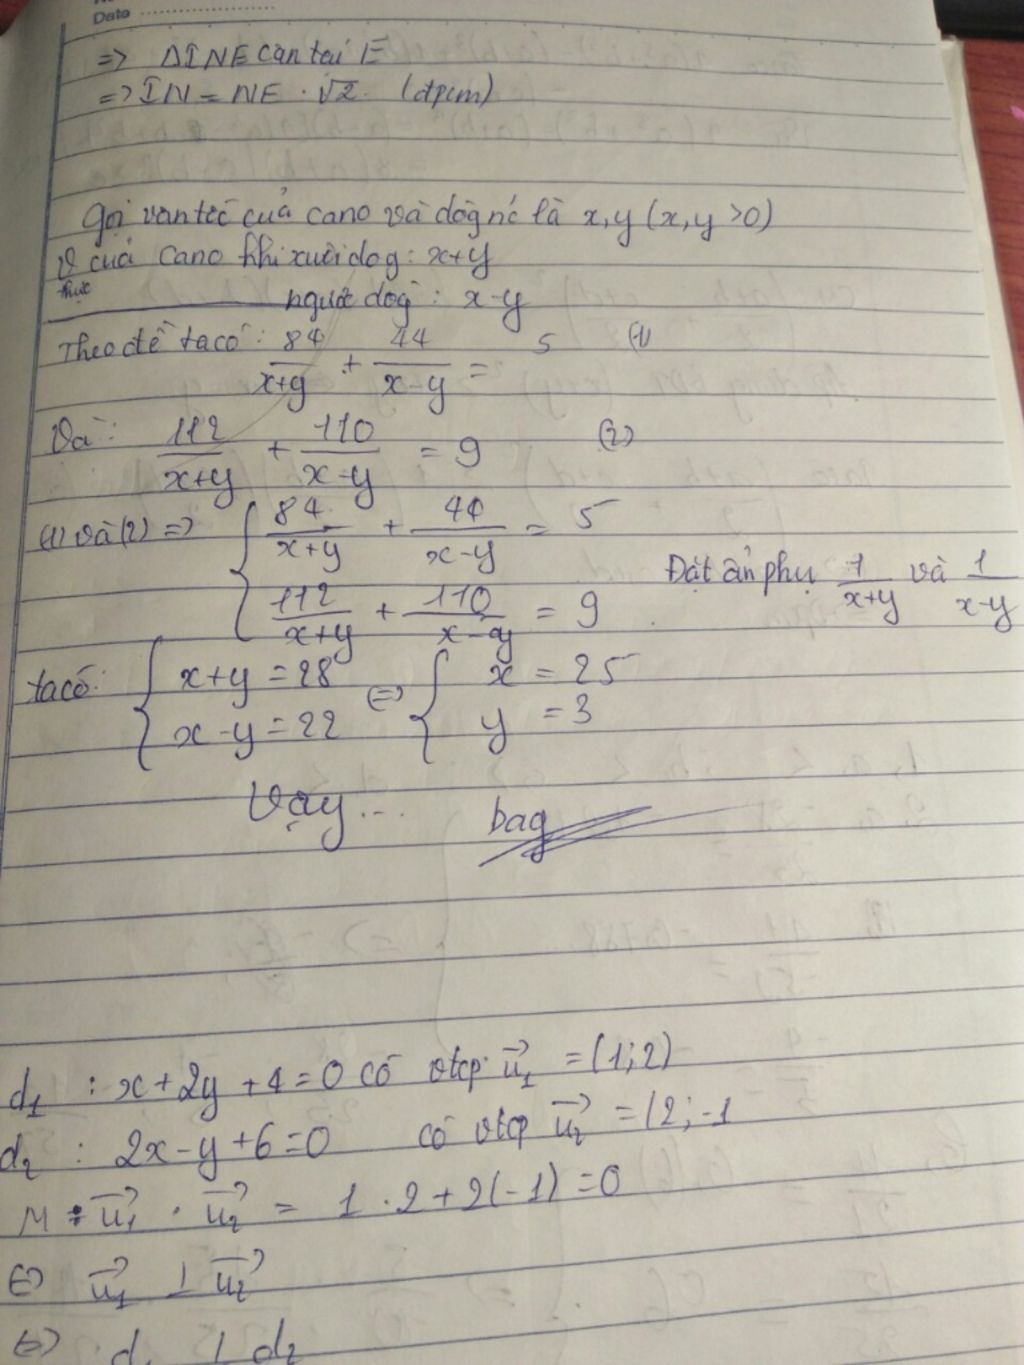 Date
=> ΔINE cân tại E
=> IN = NE . √2 (đpcm)
Gọi van tốc của cano và dòg nc là x, y (x, y > 0)
v của Cano khi xuôi dog : x+y
thực
ngược dog : x-y
Theo đề ta có : 84/(x+y) + 44/(x-y) = 5 (1)
Và : 112/(x+y) + 110/(x-y) = 9 (2)
(1) và (2) => { 84/(x+y) + 44/(x-y) = 5
Đặt ẩn phụ 1/(x+y) và 1/(x-y)
112/(x+y) + 110/(x-y) = 9
ta có: { x+y = 28 (=) { x = 25
x-y = 22 y = 3
Vậy ...
d₁ : x + 2y + 4 = 0 có vtcp u₁ = (1; 2)
d₂ : 2x - y + 6 = 0 có vtcp u₂ = (2; -1
M : u₁ . u₂ = 1 . 2 + 2(-1) = 0
(=) u₁ ⊥ u₂
(=) d₁ ⊥ d₂